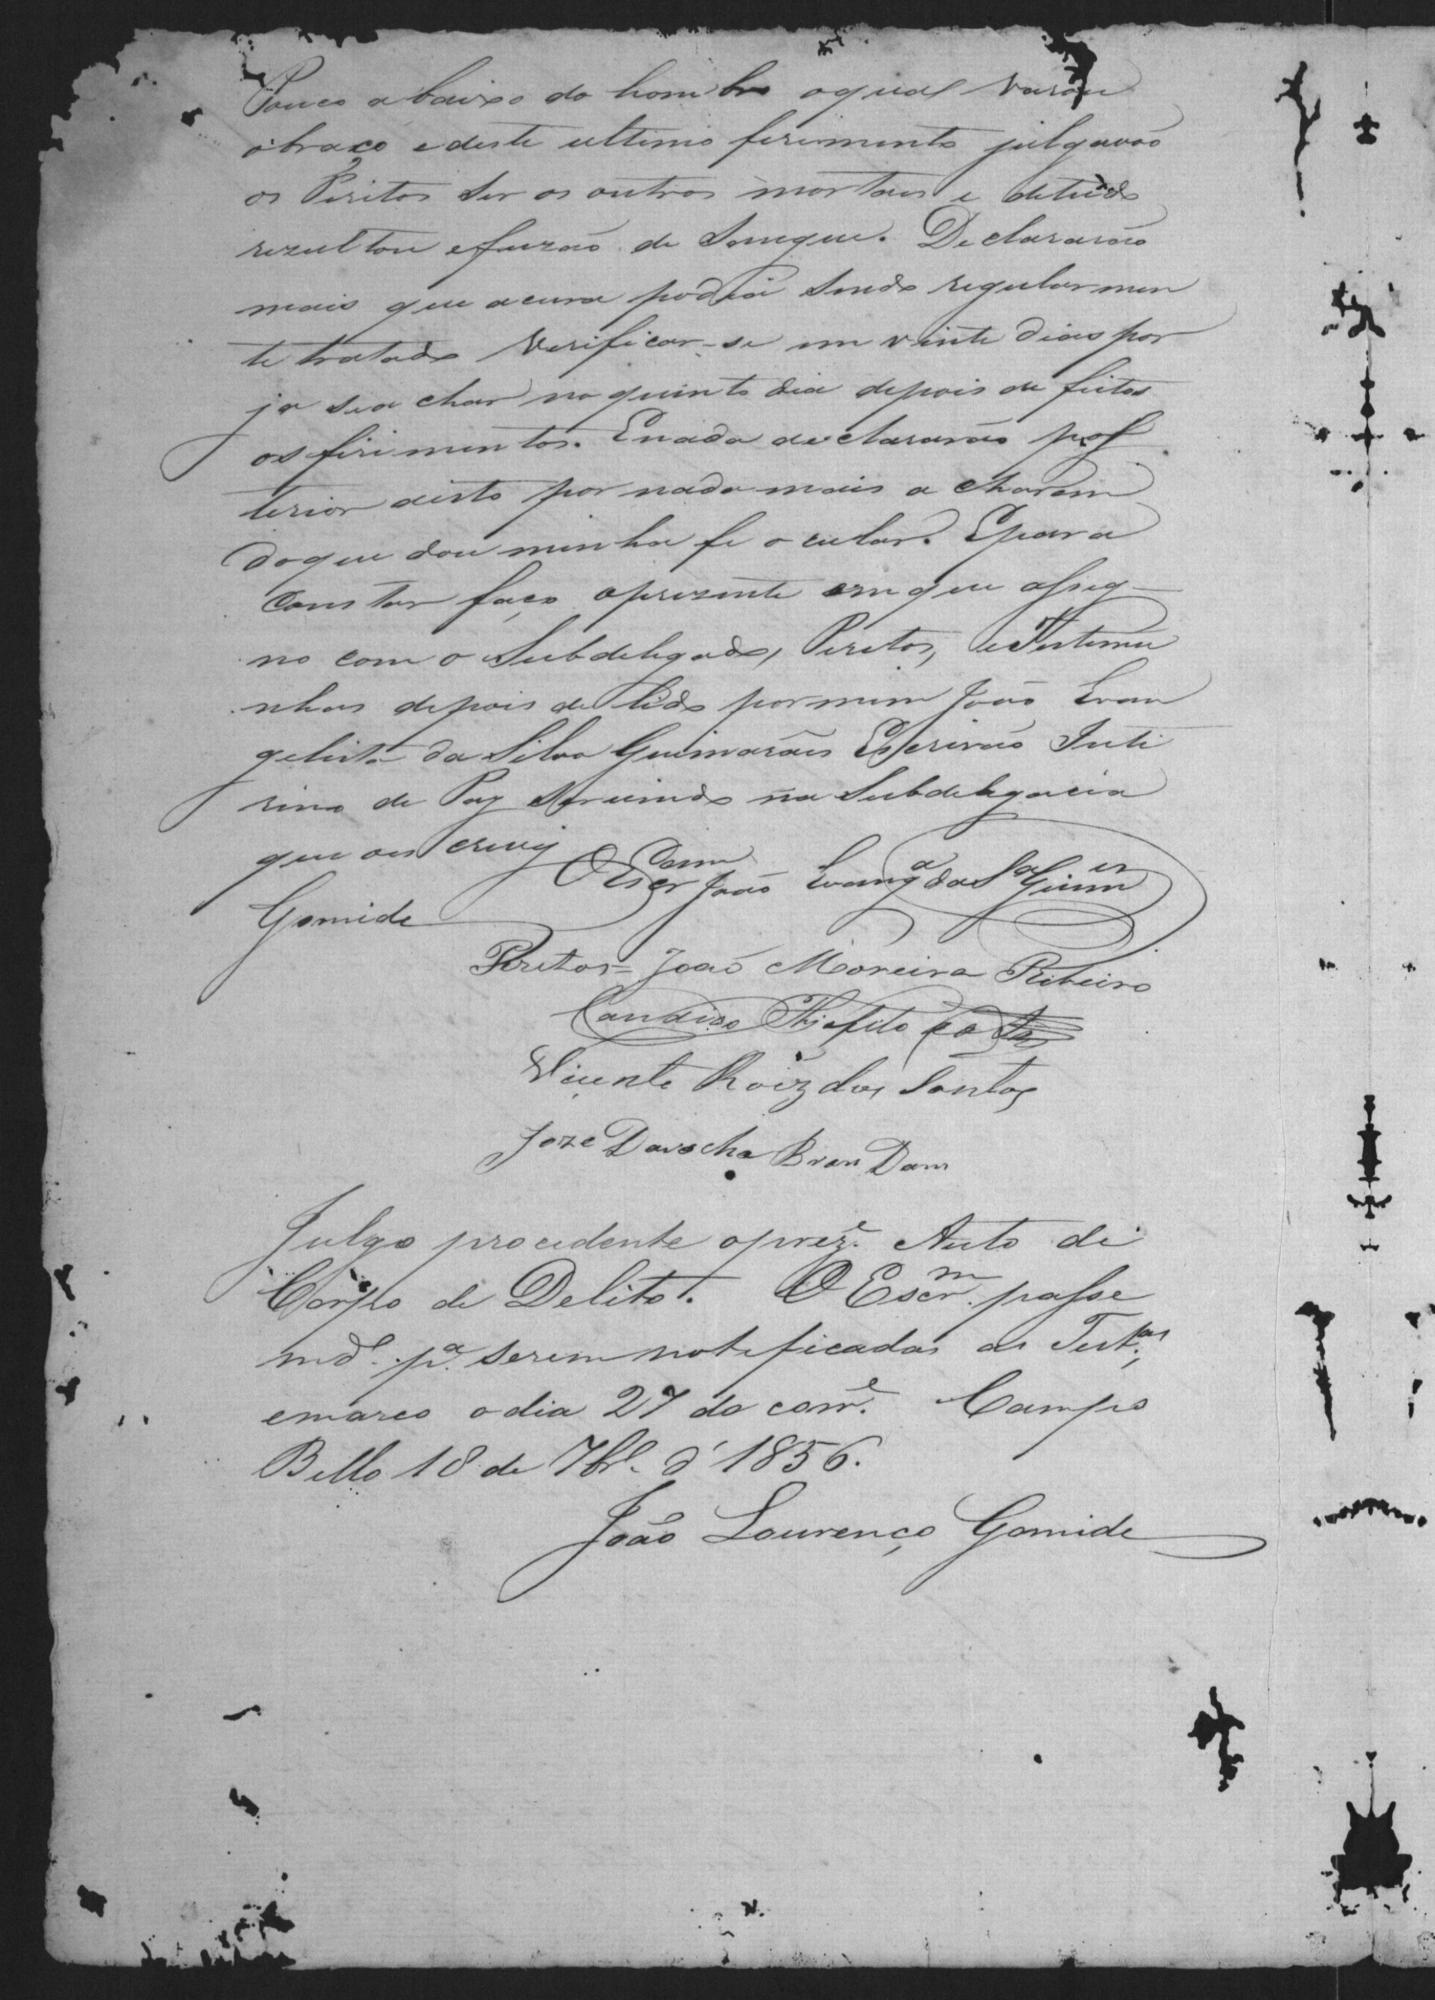 Pouco abaixo do hombro oqual varou
obraço e deste ultimo ferimento julgavão
os Peritos ser os outros mortais e detudo
rezultou efuzão de Sangue. Declararão
mais que acura podia sendo regularmen
te tratado Verificar-se em vinte dias por
ja sea char no quinto dia depois de feitos
os ferimentos. Enada declararão pos
terior disto por nada mais a charem
doque dou minha fe o cular. Epara
Constar faço oprezente em que assig-
no com o Subdelegado, Peritos, e Testemu
nhas depois de lido por mim João Evan
gelista da Silva Guimarães Escrivão Inte
rino de Paz servindo na Subdelegacia
que o escrevy
O Escr João Evang.a da S.a Guim.es
Gomide
Peritos = João Moreira Ribeiro
Candido Costa
Vicente Roiz dos Santos
Joze Darocha BranDam
Julgo procedente oprez.e Auto de
Corpo de Delito. O Escr.m passe
md.o p.a serem notificadas as Test.as,
emarco odia 27 do corr.e Campo
Bello 18 de 7br.o d' 1856.
João Lourenço Gomide